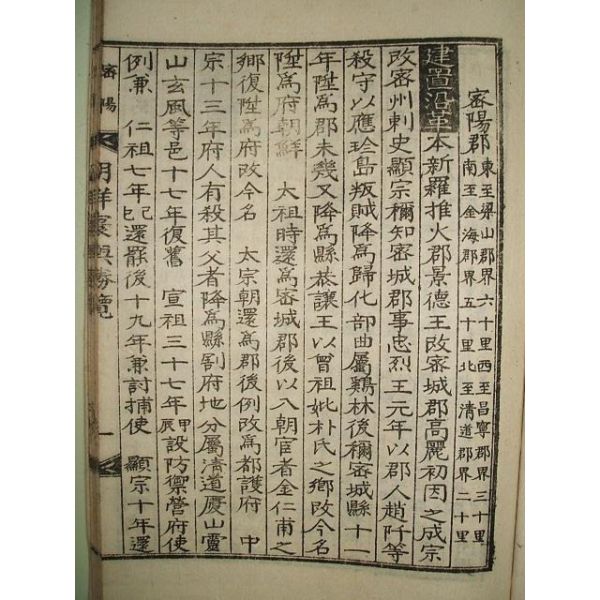 密陽郡東至梁山郡界六十里西至昌寧郡界三十里
南至金海郡界五十里北至清道郡界二十里
建置沿革本新羅推火郡景德王改密城郡高麗初因之成宗
改密州刺史顯宗稱知密城郡事忠烈王元年以郡人趙阡等
殺守以應珍島叛賊降爲歸化部曲屬鷄林後稱密城縣十一
年陞爲郡未幾又降爲縣恭讓王以曾祖妣朴氏之鄕改今名
陞爲府朝鮮 太祖時還爲密城郡後以入朝宦者金仁甫之
鄕復陞爲府改今名 太宗朝還爲郡後例改爲都護府 中
宗十三年府人有殺其父者降爲縣割府地分屬淸道慶山靈
山玄風等邑十七年復舊 宣祖三十七年甲辰設防禦營府使
例兼 仁祖七年己巳還罷後十九年兼討捕使 顯宗十年還
密陽
朝鮮寰輿勝覽
一